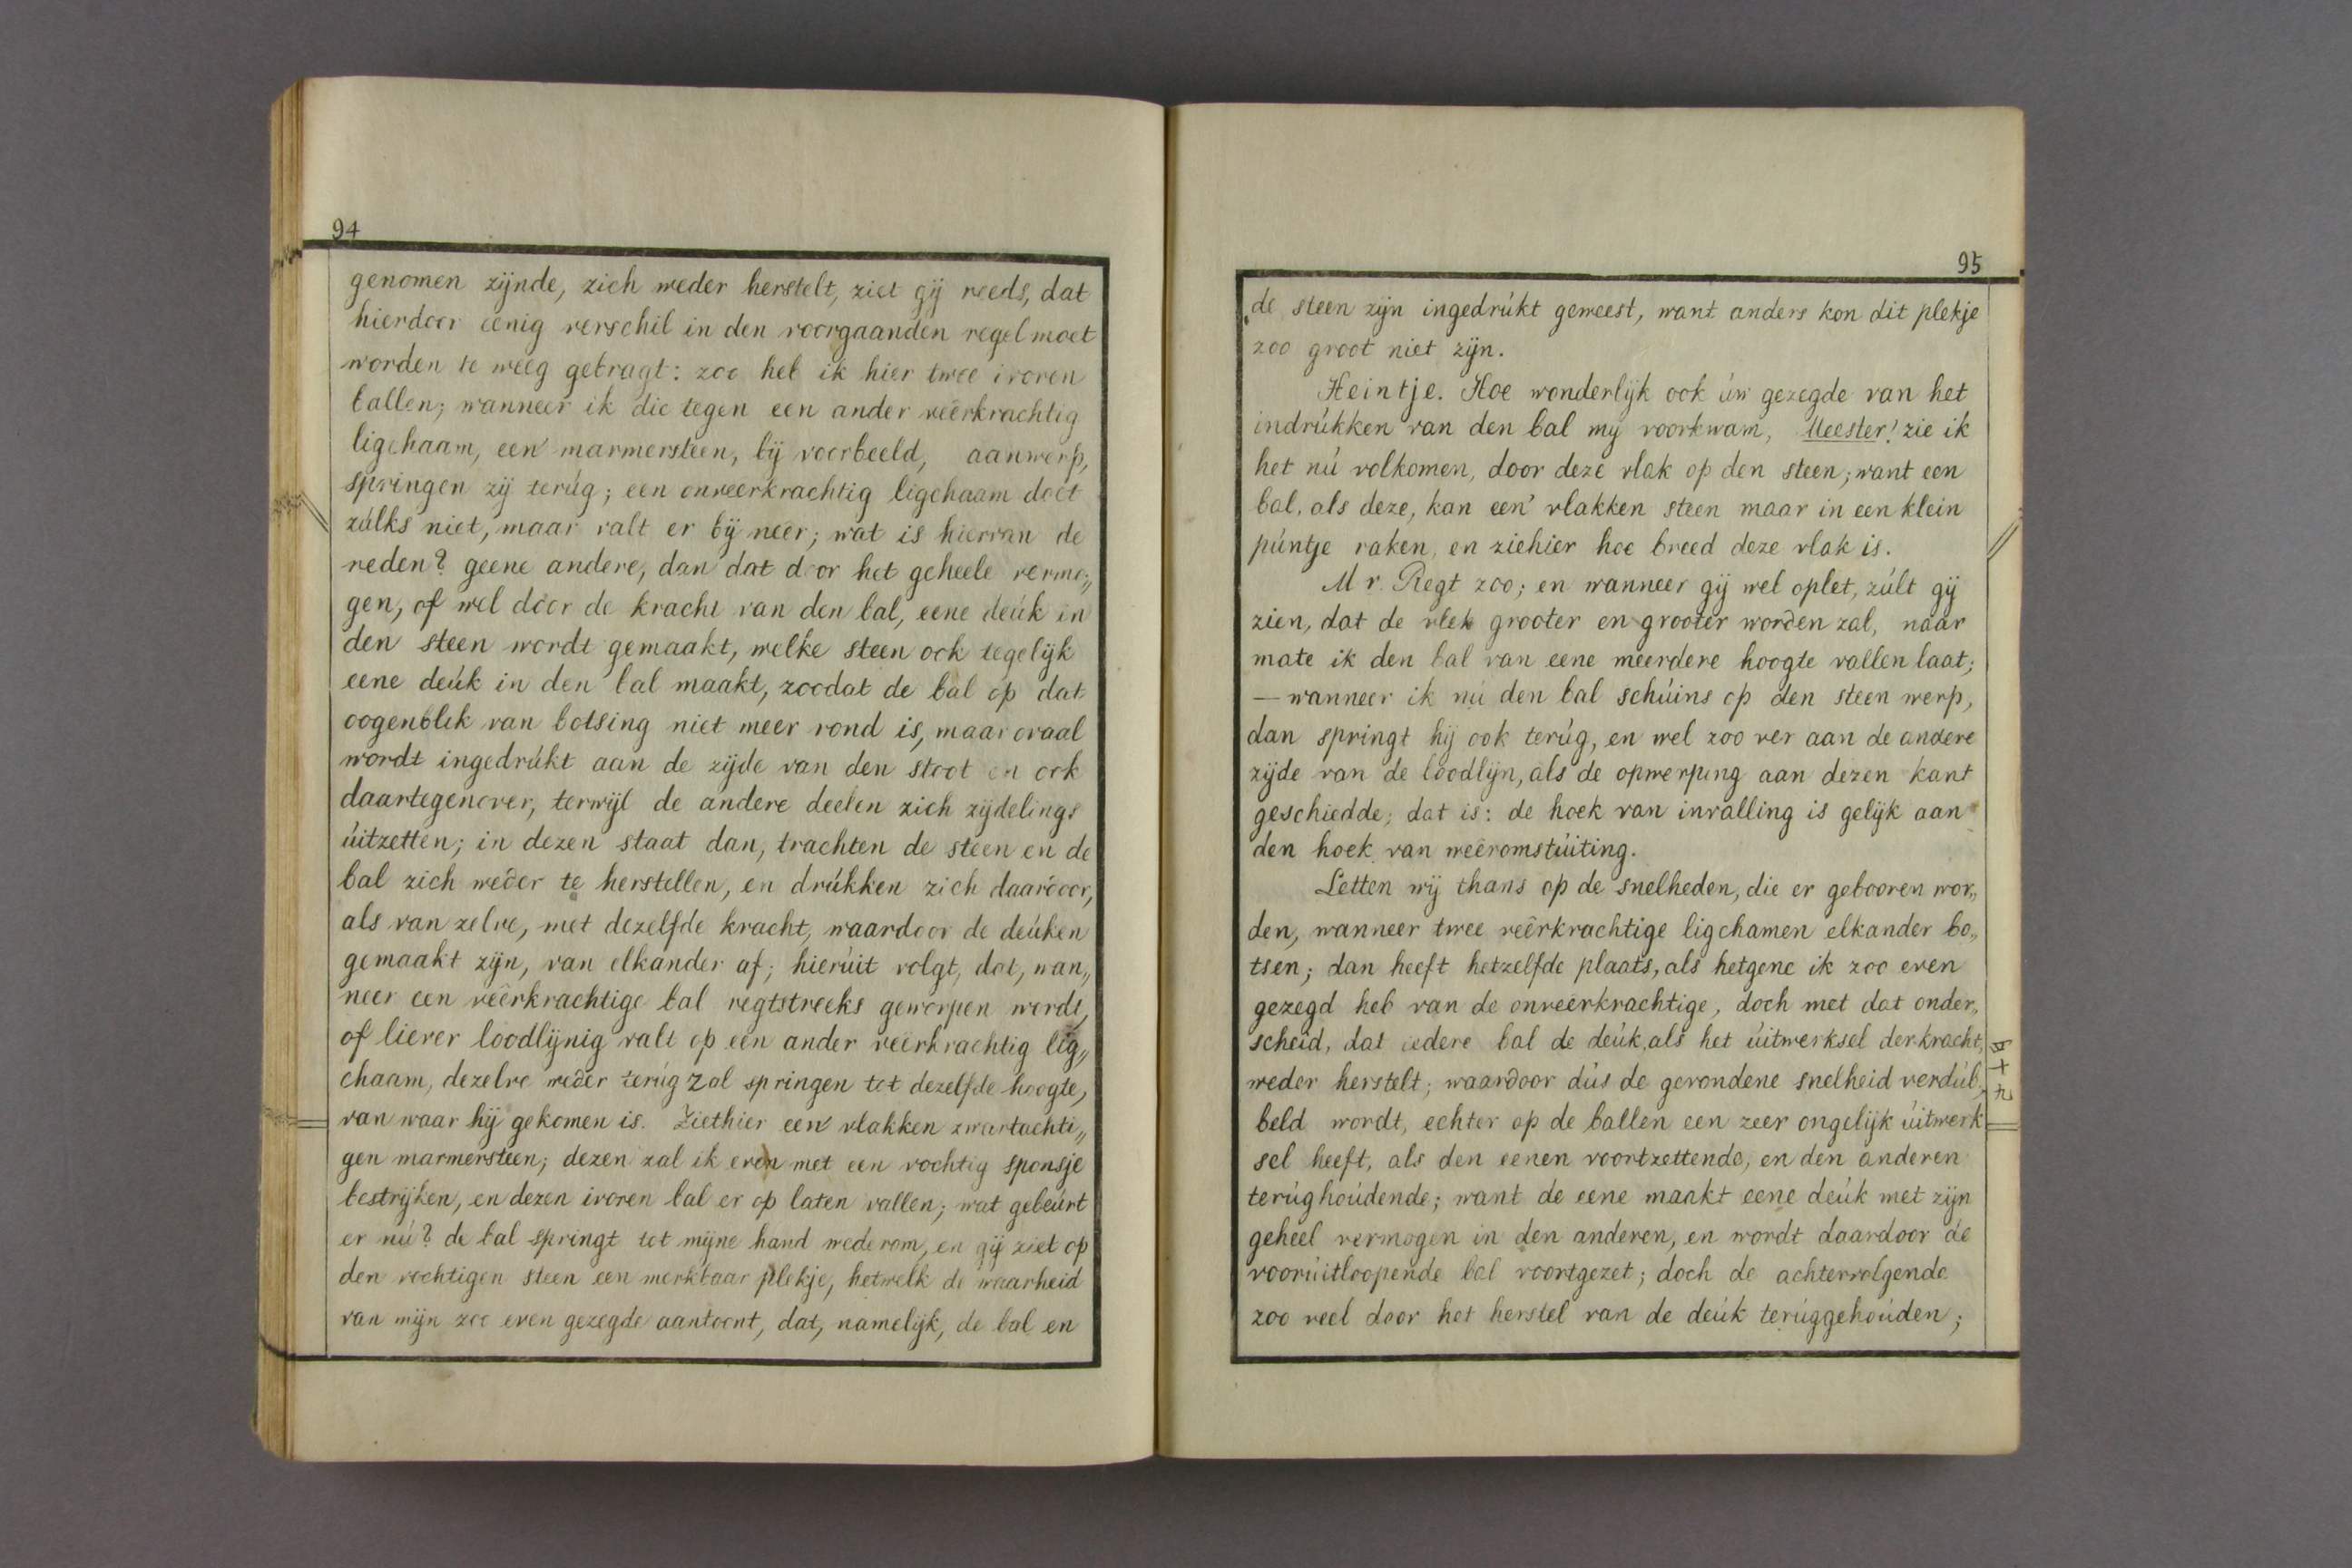 94
genomen zijnde, zich weder herstelt, ziet gij reeds, dat
hierdoor eenig verschil in den voorgaanden regel moet
worden te weeg gebragt: zoo heb ik hier twee ivoren
ballen; wanneer ik die tegen een ander veêrkrachtig
ligchaam, een' marmersteen, bij voorbeeld, aanwerp,
springen zij terúg; een onveerkrachtig ligchaam doet
zúlks niet, maar valt er bij neer; wat is hiervan de
reden? geene andere, dan dat door het geheele vermo„
gen, of wel door de kracht van den bal, eene deúk in
den steen wordt gemaakt, welke steen ook tegelijk
eene deúk in den bal maakt, zoodat de bal op dat
oogenblik van botsing niet meer rond is, maar ovaal
wordt ingedrúkt aan de zijde van den stoot en ook
daartegenover, terwijl de andere deelen zich zijdelings
úitzetten; in dezen staat dan, trachten de steen en de
bal zich weder te herstellen, en drúkken zich daardoor,
als van zelve, met dezelfde kracht, waardoor de deúken
gemaakt zijn, van elkander af; hierúit volgt, dat, wan„
neer een veêrkrachtige bal regtstreeks geworpen wordt,
of liever loodlijnig valt op een ander veêrkrachtig lig„
chaam, dezelve weder terúg zal springen tot dezelfde hoogte,
van waar hij gekomen is. Ziethier een' vlakken zwartachti„
gen marmersteen; dezen zal ik even met een vochtig sponsje
bestrijken, en dezen ivoren bal er op laten vallen; wat gebeúrt
er nú? de bal springt tot mijne hand wederom, en gij ziet op
den vochtigen steen een merkbaar plekje, hetwelk de waarheid
van mijn zoo even gezegde aantoont, dat, namelijk, de bal en
95
de steen zijn ingedrúkt geweest, want anders kon dit plekje
zoo groot niet zijn.
Heintje. Hoe wonderlijk ook úw gezegde van het
indrúkken van den bal mij voorkwam, Meester! zie ik
het nú volkomen, door deze vlak op den steen; want een
bal, als deze, kan een' vlakken steen maar in een klein
púntje raken, en ziehier hoe breed deze vlak is.
Mr. Regt zoo; en wanneer gij wel oplet, zúlt gij
zien, dat de vlek grooter en grooter worden zal, naar
mate ik den bal van eene meerdere hoogte vallen laat;
— wanneer ik nú den bal schúins op den steen werp,
dan springt hij ook terúg, en wel zoo ver aan de andere
zijde van de loodlijn, als de opwerping aan dezen kant
geschiedde; dat is: de hoek van invalling is gelijk aan
den hoek van weêromstúiting.
Letten wij thans op de snelheden, die er gebooren wor„
den, wanneer twee veêrkrachtige ligchamen elkander bo„
tsen; dan heeft hetzelfde plaats, als hetgene ik zoo even
gezegd heb van de onveerkrachtige, doch met dat onder„
scheid, dat iedere bal de deúk, als het úitwerksel der kracht,
weder herstelt; waardoor dús de gevondene snelheid verdúb„
beld wordt, echter op de ballen een zeer ongelijk úitwerk
sel heeft, als den eenen voortzettende, en den anderen
terúghoúdende; want de eene maakt eene deúk met zijn
geheel vermogen in den anderen, en wordt daardoor de
voorúitloopende bal voortgezet; doch de achtervolgende
zoo veel door het herstel van de deúk terúggehoúden;